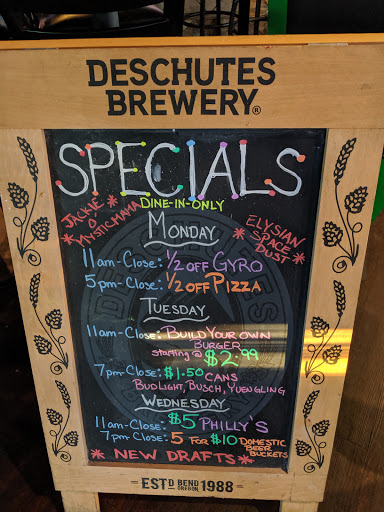 DESCHUTES
BREWERY®
SPECIALS
DINE-IN-ONLY
JACKIE
O
MYSTICMAMA
ELYSIAN
SPACE
DUST
MONDAY
11am-Close: 1/2 OFF GYRO
5pm-Close: 1/2 OFF PIZZA
TUESDAY
11am-Close: BUILD YOUR OWN
BURGER
starting @ $2.99
7pm-Close: $1.50 CANS
BUDLIGHT, BUSCH, YUENGLING
WEDNESDAY
11am-Close: $5 PHILLY'S
7pm-Close: 5 FOR $10 DOMESTIC
BEER
BUCKETS
* NEW DRAFTS *
ESTD BEND OREGON 1988